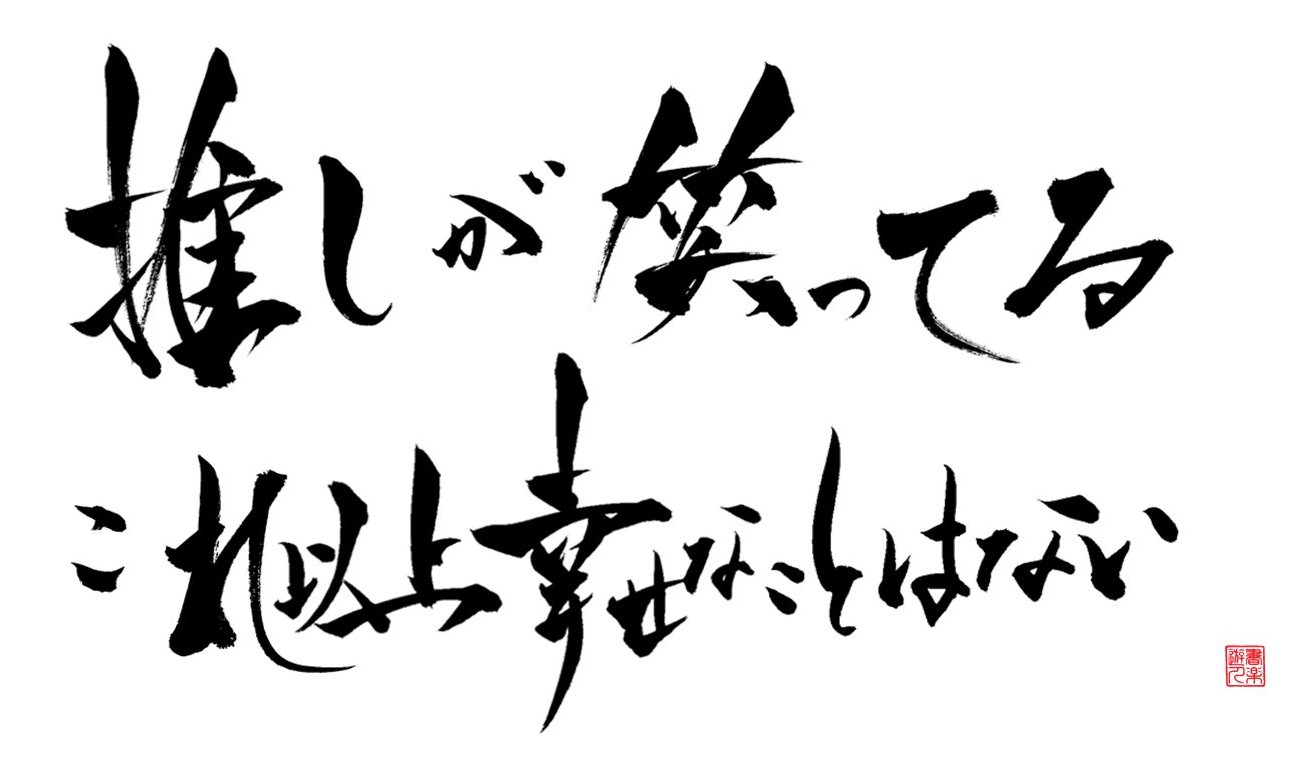 推しが笑ってる
これ以上幸せなことはない
書楽遊人